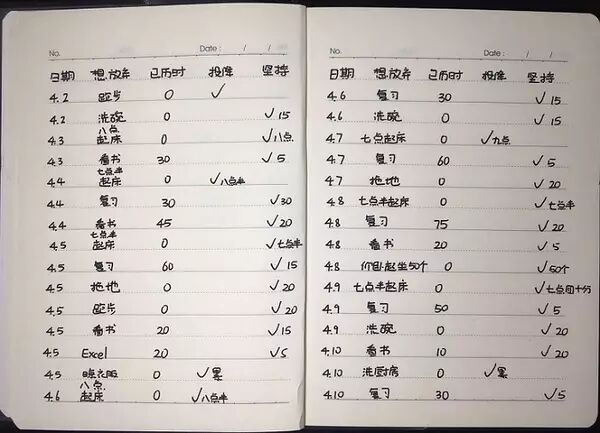 No. Date: / /
日期 想放弃 已历时 投降 坚持
4.2 跑步 0 ✓
4.2 洗碗 0 ✓15
4.3 八点起床 0 ✓八点
4.3 看书 30 ✓5
4.4 七点半起床 0 ✓八点半
4.4 复习 30 ✓30
4.4 看书 45 ✓20
4.5 七点半起床 0 ✓七点半
4.5 复习 60 ✓15
4.5 拖地 0 ✓20
4.5 跑步 0 ✓20
4.5 看书 20 ✓15
4.5 Excel 20 ✓5
4.5 晾衣服 0 ✓累
4.6 八点起床 0 ✓八点半
No. Date: / /
日期 想放弃 已历时 投降 坚持
4.6 复习 30 ✓15
4.6 洗碗 0 ✓15
4.7 七点起床 0 ✓九点
4.7 复习 60 ✓5
4.7 拖地 0 ✓20
4.8 七点半起床 0 ✓七点半
4.8 复习 75 ✓20
4.8 看书 20 ✓5
4.8 仰卧起坐50个 0 ✓50个
4.9 七点半起床 0 ✓七点四十分
4.9 复习 50 ✓5
4.9 洗碗 0 ✓20
4.10 看书 10 ✓20
4.10 洗厨房 0 ✓累
4.10 复习 30 ✓5